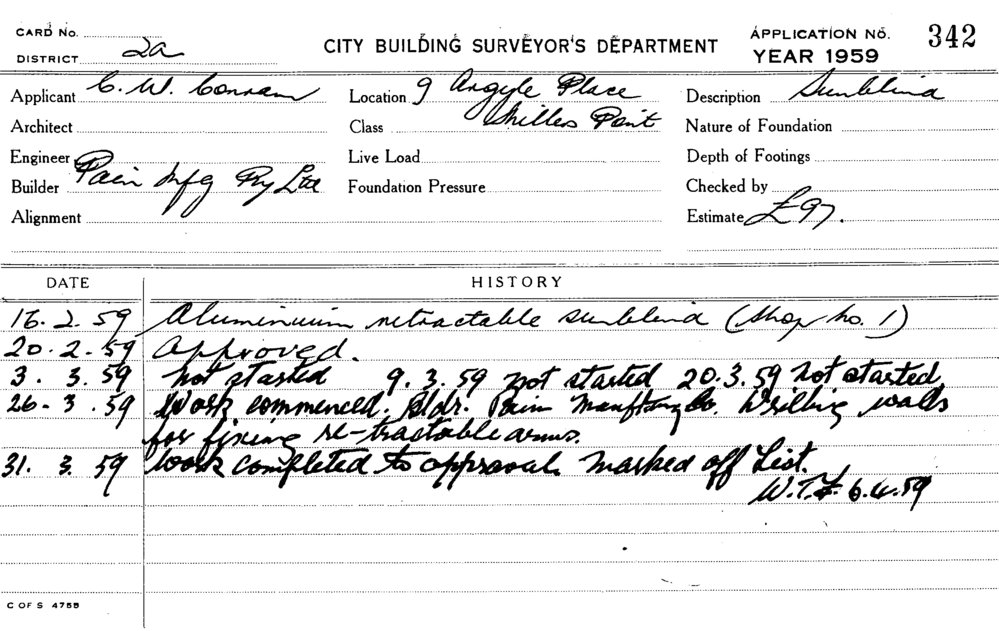 CARD NO.
DISTRICT 2a
CITY BUILDING SURVEYOR'S DEPARTMENT
APPLICATION NO. 342
YEAR 1959
Applicant C. W. Conram
Location 9 Argyle Place
Description Sunblind
Architect
Class Millers Point
Nature of Foundation
Engineer
Live Load
Depth of Footings
Builder Pain Mfg Pty Ltd
Foundation Pressure
Checked by
Alignment
Estimate £97.
DATE HISTORY
16. 2. 59 Aluminium retractable sunblind (Shop No. 1)
20. 2. 59 Approved.
3. 3. 59 Not started 9. 3. 59 not started 20. 3. 59 Not started
26. 3. 59 Work commenced. Bldr. Pain Manftng Co. Drilling walls
for fixing re-tractable arms.
31. 3. 59 Work completed to approval. Marked off List.
6.4.59
C OF S 4755